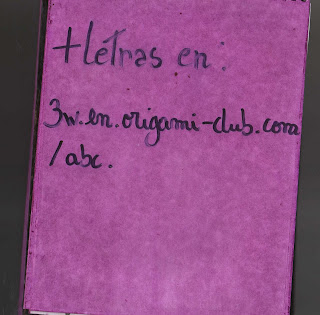 +letras en:
3w.en.origami-club.com
/abc.